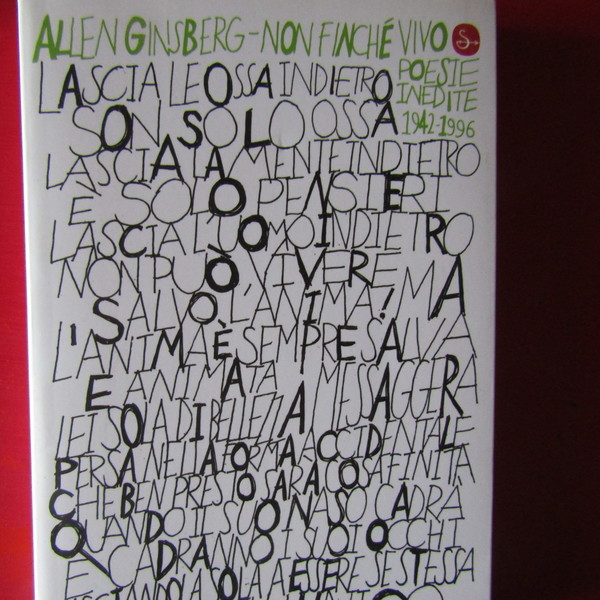 ALLEN GINSBERG - NON FINCHÉ VIVO
POESIE
INEDITE
1942-1996
LASCIA LE OSSA INDIETRO
SON SOLO OSSA
LASCIA LA MENTE INDIETRO
È SOLO PENSIERI
LASCIA L'UOMO INDIETRO
NON PUÒ VIVERE MA
SALVO L'ANIMA!
L'ANIMA È SEMPRE SALVA
E ANIMATA MESSAGGERA
LEI SOLA DI BELLEZZA
PERSA NELLA FORMA ACCIDENTALE
CHE BEN PRESTO SARÀ COSA FINITA
QUANDO IL SUO NASO CADRÀ
E CADRANNO I SUOI OCCHI
LASCIANDOLA SOLA A ESSERE SE STESSA